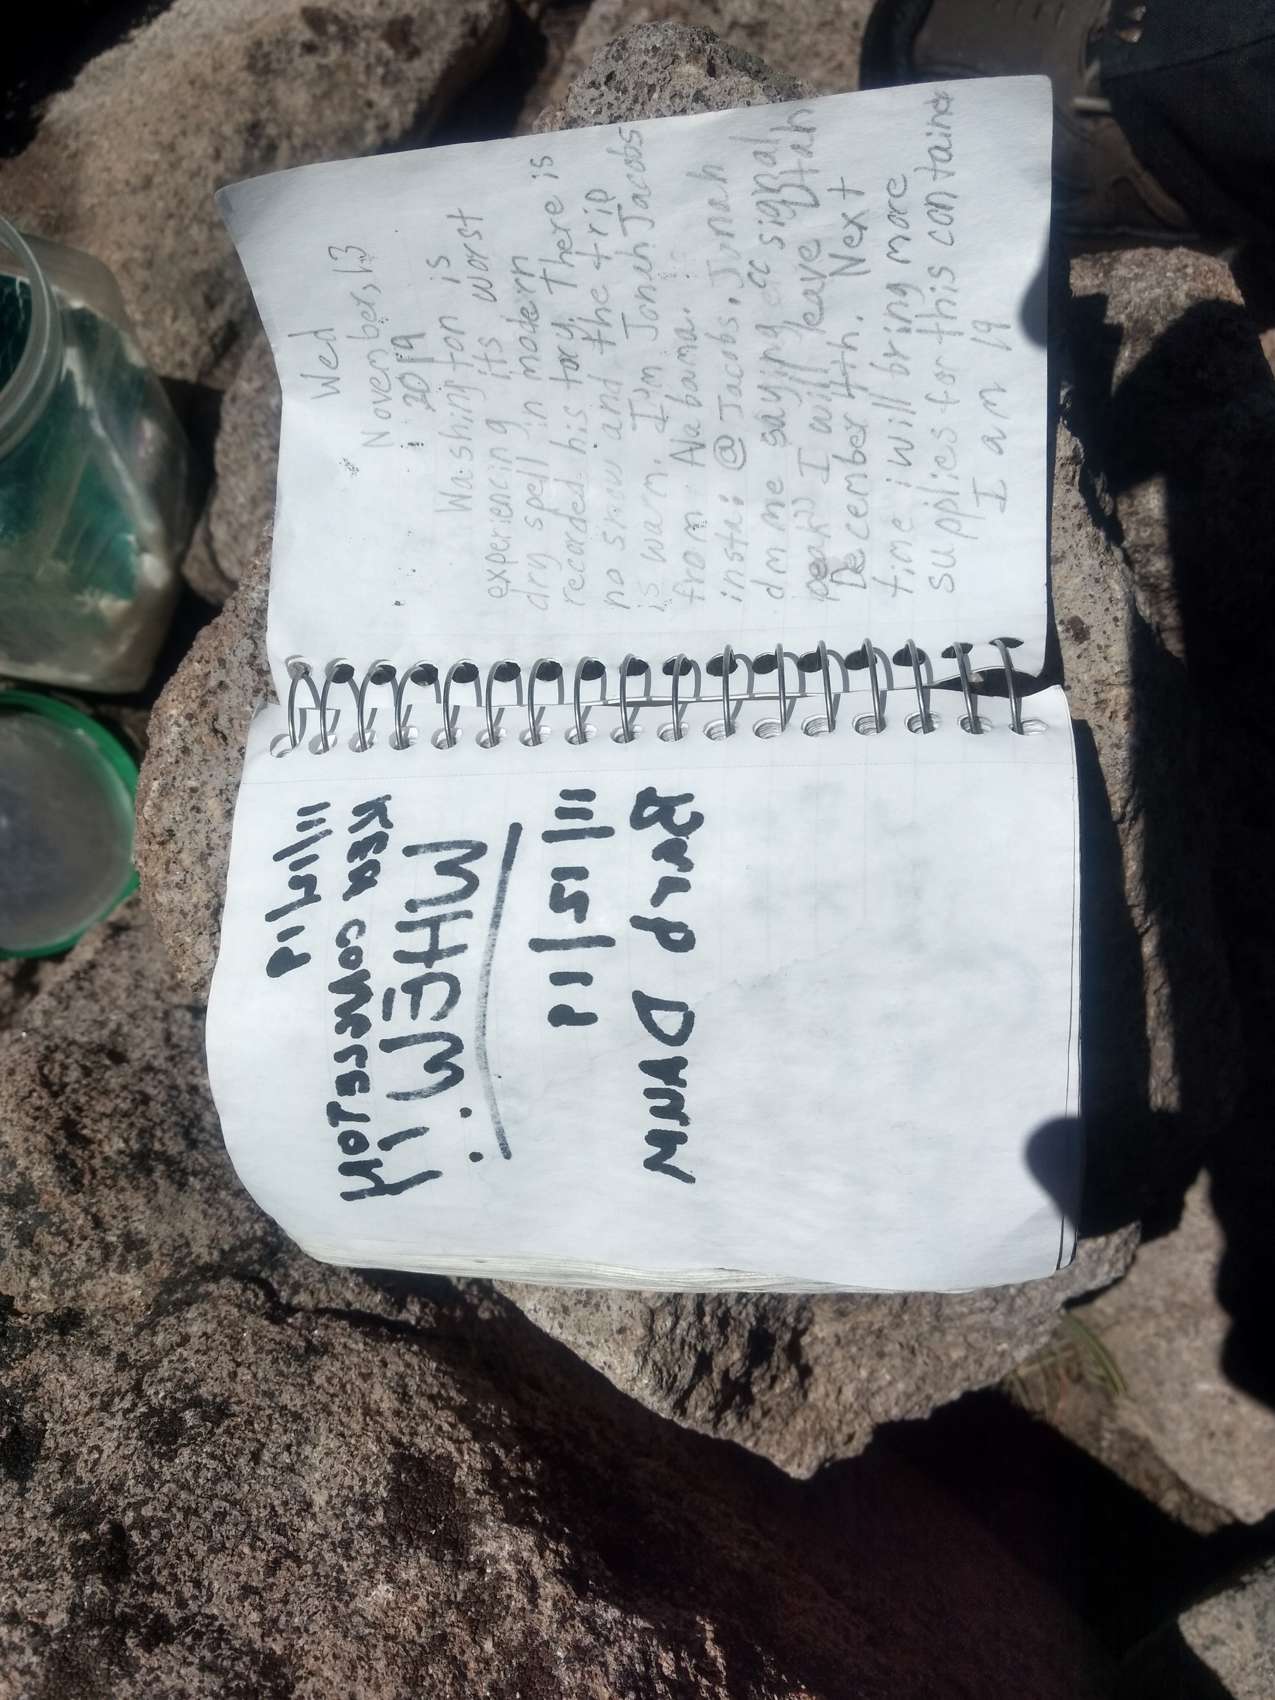 Wed
November, 13
2019
Washington is
experiencing its worst
dry spell in modern
recorded his tory. There is
no snow and the trip
is warm. I'm Jonah Jacobs
from Alabama.
insta: @Jacobs.Junah
dm me saying cc signal
peak I will leave Utah
December 4th. Next
time i will bring more
supplies for this container
I am 19
11/14/19
KEEP COMPLETION
WHEW!
11/15/19
DANN